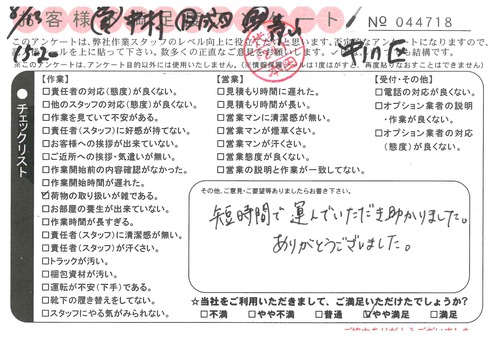 お客様 満足 アンケート
№ 044718
このアンケートは、弊社作業スタッフのレベル向上に役立たいと思います。
中川区
【作業】
□責任者の対応(態度)が良くない。
□他のスタッフの対応(態度)が良くない。
□作業を見ていて不安がある。
□責任者(スタッフ)に好感が持てない。
□お客様への挨拶が出来ていない。
□ご近所への挨拶・気遣いが無い。
□作業開始前の内容確認がなかった。
□作業開始時間が遅れた。
☑荷物の取り扱いが雑である。
□お部屋の養生が出来ていない。
□作業時間が長すぎる。
□責任者(スタッフ)に清潔感が無い。
□責任者(スタッフ)が汗くさい。
□トラックが汚い。
□梱包資材が汚い。
□運転が不安(下手)である。
□靴下の履き替えをしてない。
□スタッフにやる気がみられない。
【営業】
□見積もり時間に遅れた。
□見積もり時間が長い。
□営業マンに清潔感が無い。
□営業マンが煙草くさい。
□営業マンが汗くさい。
□営業態度が良くない。
□営業の説明と作業が一致してない。
【受付・その他】
□電話の対応が良くない。
□オプション業者の説明
・作業が良くない。
□オプション業者の対応
(態度)が良くない。
チェックリスト
その他、ご意見・ご要望等ありましたらお書き下さい。
短時間で運んでいただき助かりました。
ありがとうございました。
☆当社をご利用いただきまして、ご満足いただけたでしょうか?
□不満 □やや不満 □普通 ☑やや満足 □満足